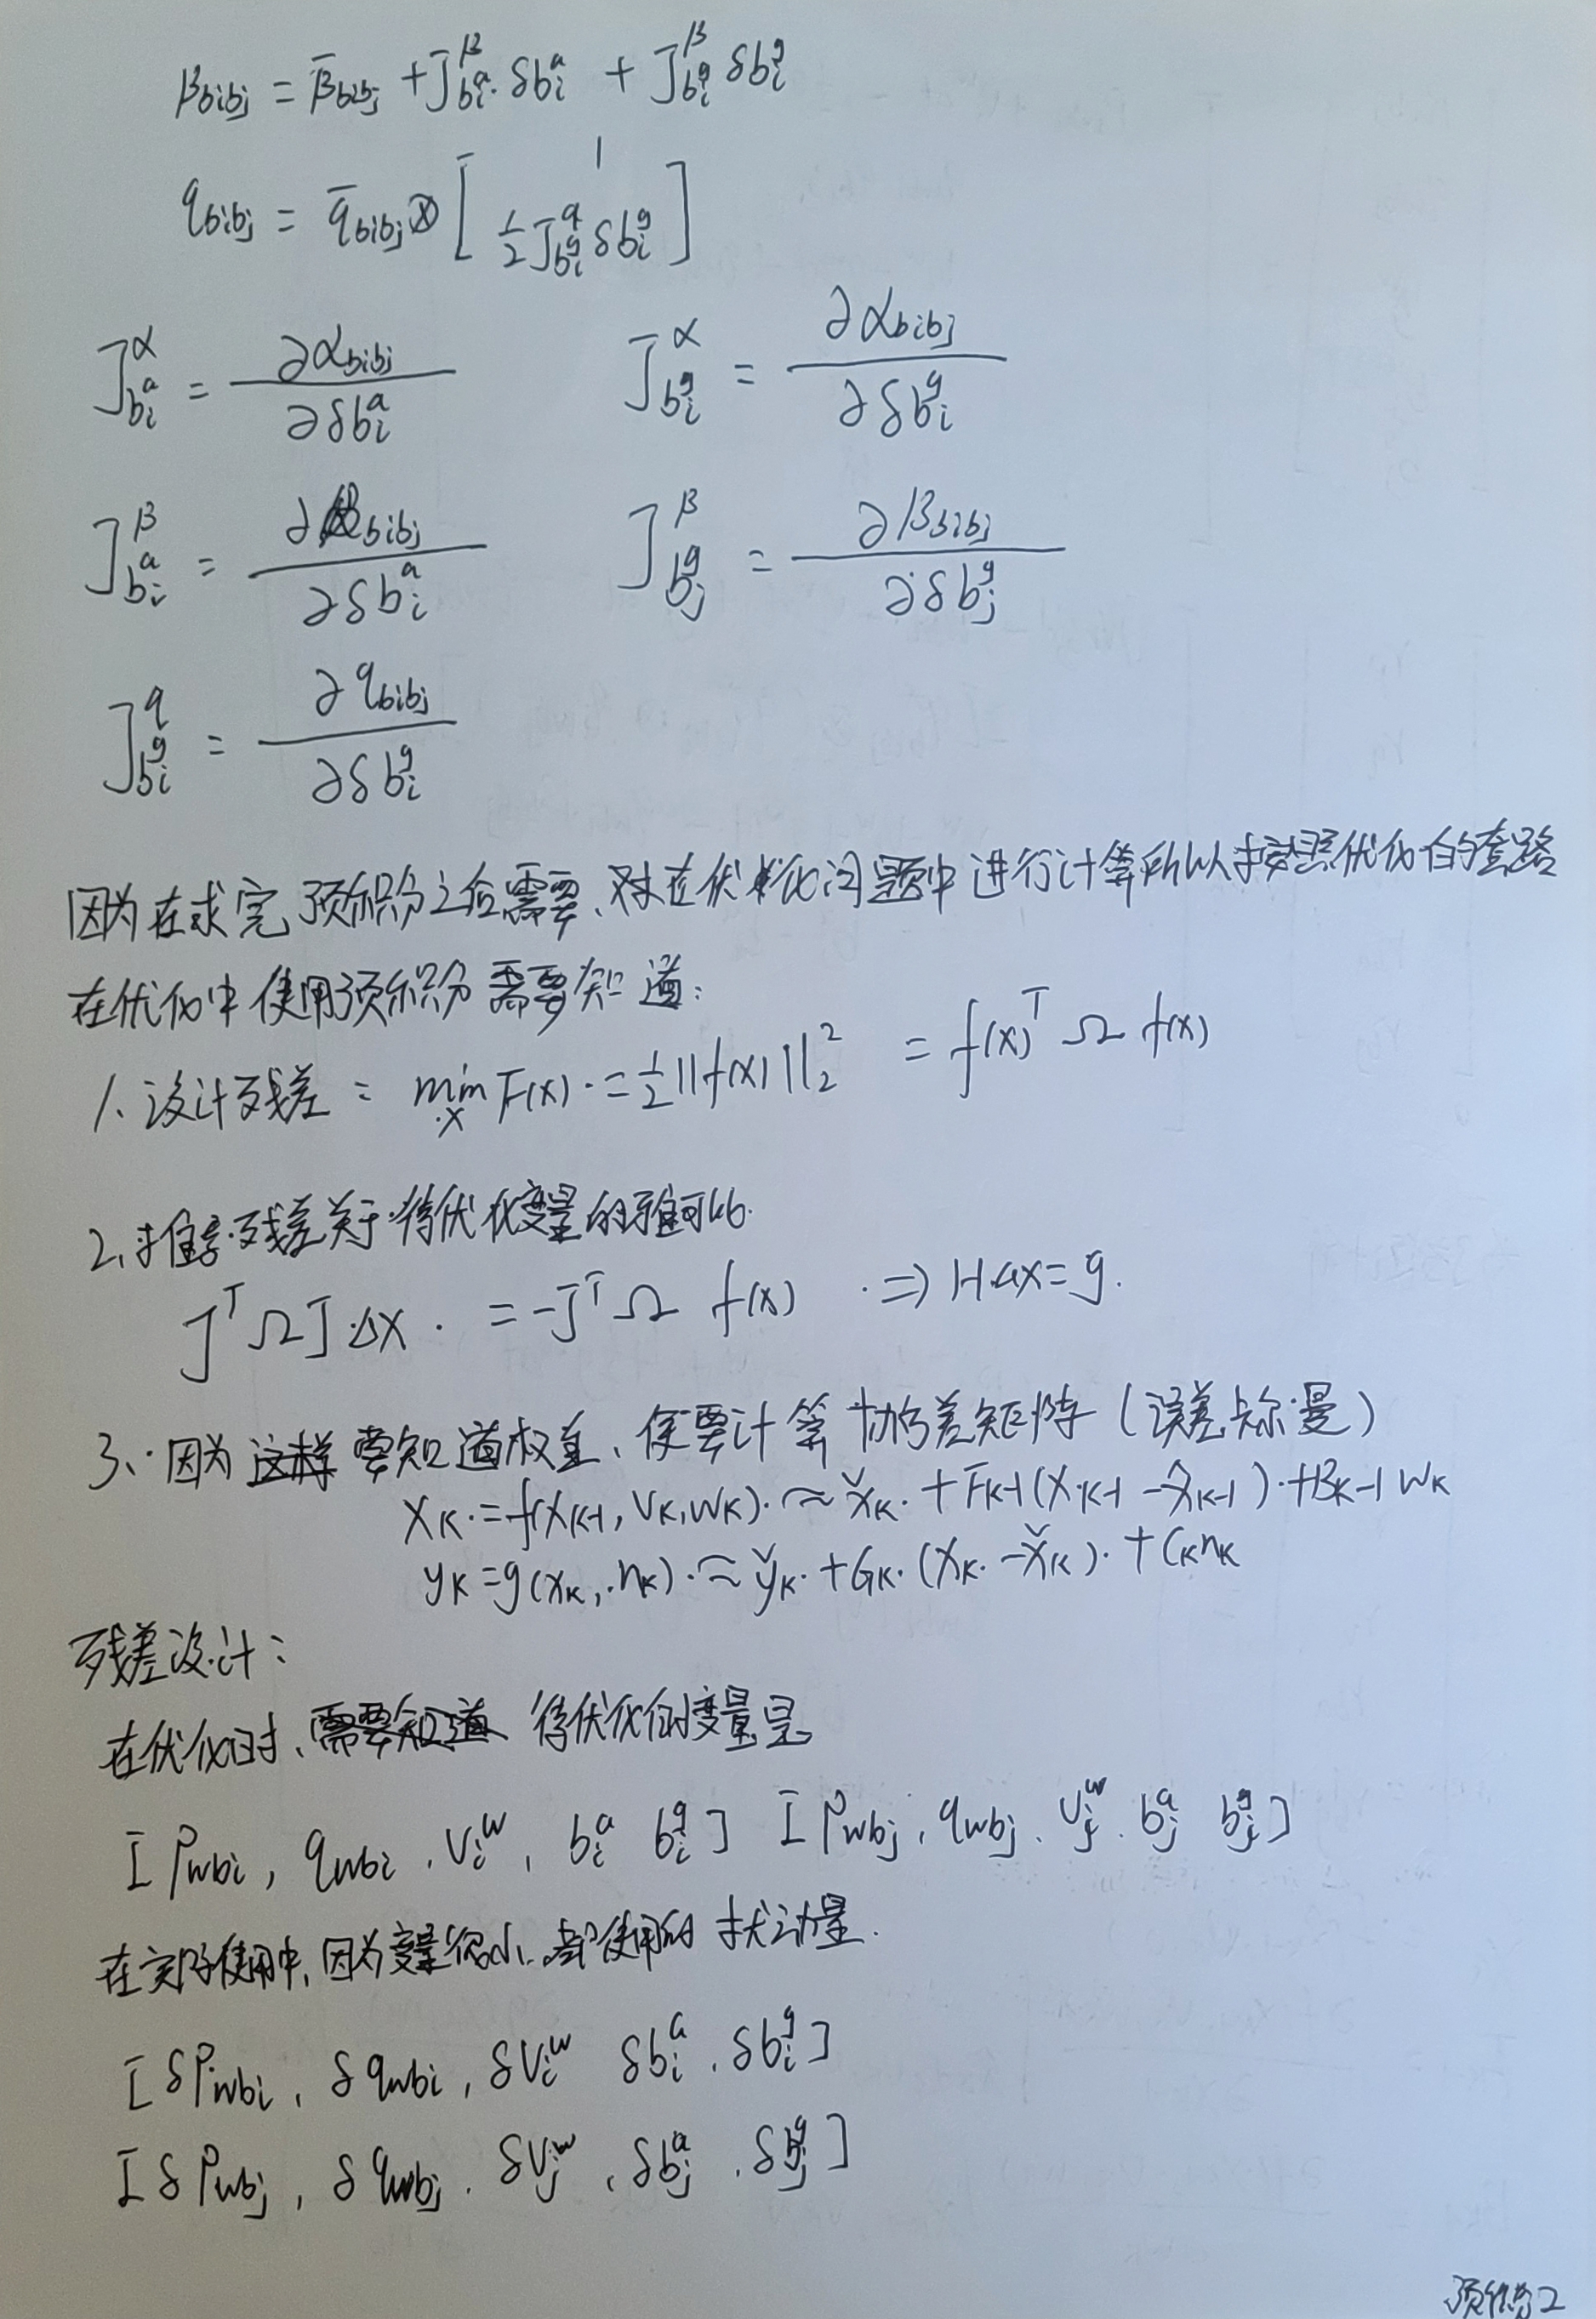 β_{bibj} = \bar{β}_{bibj} + J^{β}_{b_i^a} · δb_i^a + J^{β}_{b_i^g} δb_i^g
q_{bibj} = \bar{q}_{bibj} ⊗ [ 1 ; ½ J^{q}_{b_i^g} δb_i^g ]
J^{α}_{b_i^a} = ∂α_{bibj} / ∂δb_i^a    J^{α}_{b_i^g} = ∂α_{bibj} / ∂δb_i^g
J^{β}_{b_i^a} = ∂β_{bibj} / ∂δb_i^a    J^{β}_{b_j^g} = ∂β_{bibj} / ∂δb_j^g
J^{q}_{b_i^g} = ∂q_{bibj} / ∂δb_i^g
因为在求完预积分之后需要、在优化问题中进行计算所以按照优化的套路
在优化中使用预积分需要知道:
1、设计残差 : min_x F(x) = ½||f(x)||_2^2 = f(x)^T Ω f(x)
2、推导残差关于待优化变量的雅可比.
J^T Ω J Δx = -J^T Ω f(x) ⇒ H Δx = g.
3、因为这样要知道权重、便要计算协方差矩阵 (误差卡尔曼)
x_k = f(x_{k-1}, v_k, w_k) ≈ \check{x}_k + F_{k-1}(x_{k-1} - \hat{x}_{k-1}) + B_{k-1} w_k
y_k = g(x_k, n_k) ≈ \check{y}_k + G_k (x_k - \check{x}_k) + C_k n_k
残差设计:
在优化时、需要知道 待优化的变量是
[P_{wbi}, q_{wbi}, v_i^w, b_i^a b_i^g] [P_{wbj}, q_{wbj}, v_j^w, b_j^a b_j^g]
在实际使用中, 因为变量很小、都使用的扰动量.
[δP_{wbi}, δq_{wbi}, δv_i^w δb_i^a, δb_i^g]
[δP_{wbj}, δq_{wbj}, δv_j^w, δb_j^a, δb_j^g]
预积分2